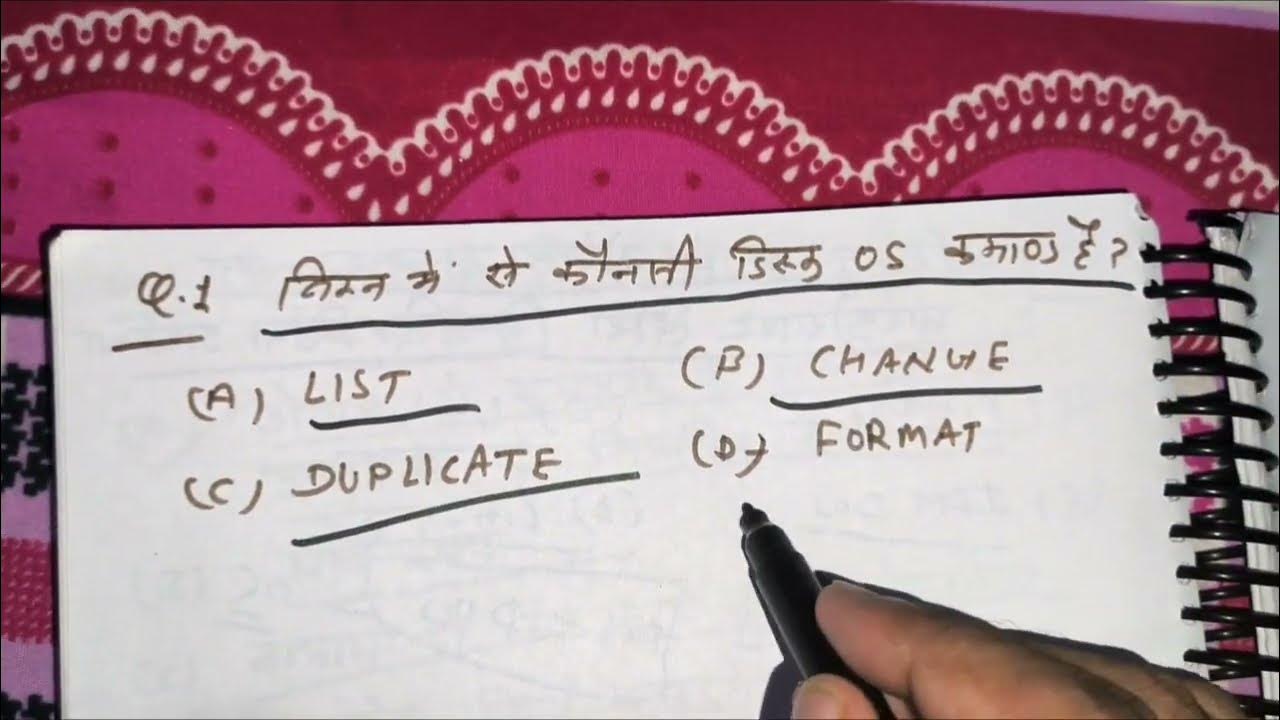 Q.1 निम्न में से कौनसी डिस्क OS कमाण्ड है ?
(A) LIST (B) CHANGE
(C) DUPLICATE (D) FORMAT